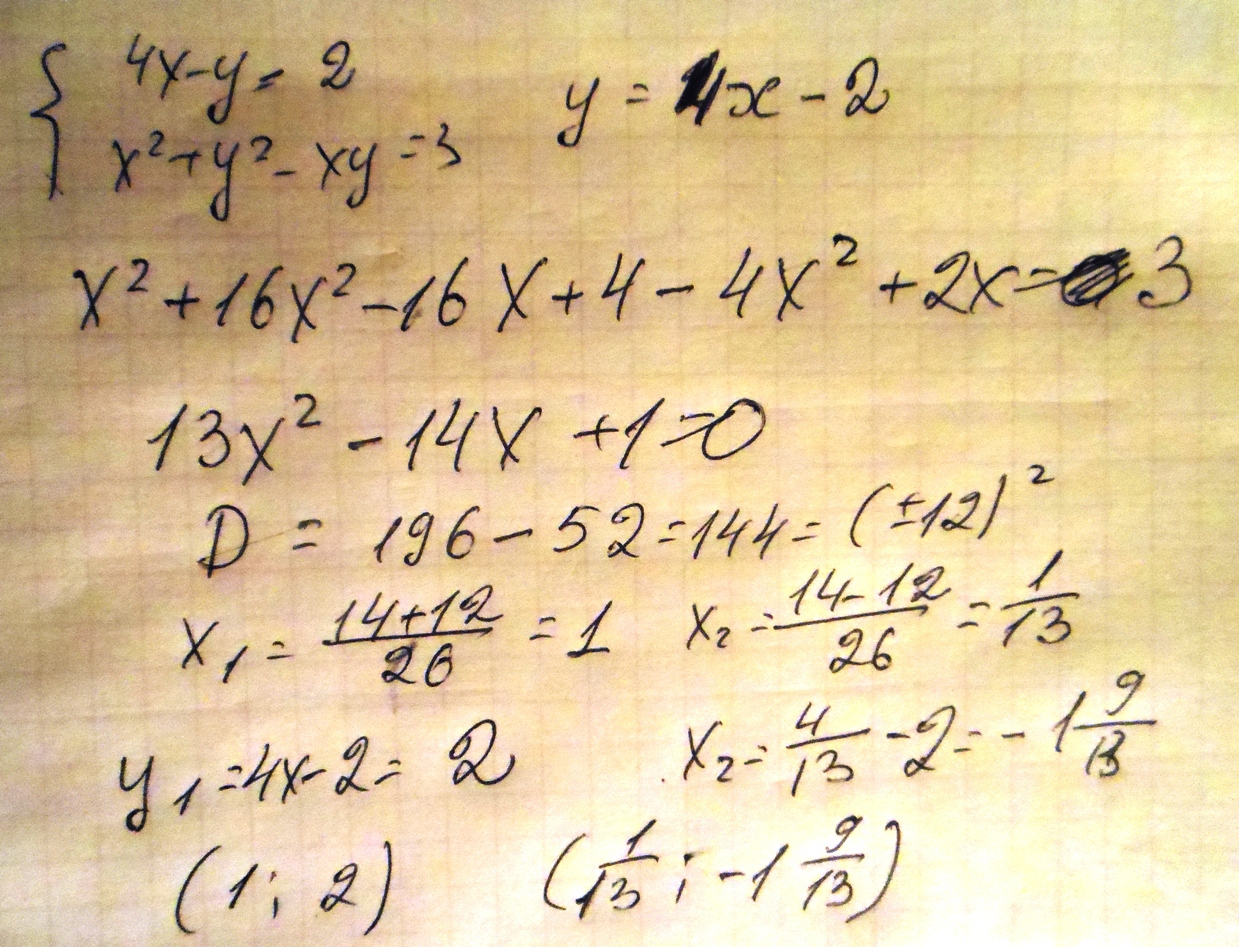 { 4x-y= 2
x²+y²-xy=3
y = 4x-2
x²+16x²-16x+4-4x²+2x=3
13x²-14x+1=0
D = 196-52=144=(±12)²
x₁ = (14+12)/26 = 1 x₂ = (14-12)/26 = 1/13
y₁=4x-2= 2 x₂= 4/13 -2=-1 9/13
(1; 2) (1/13; -1 9/13)